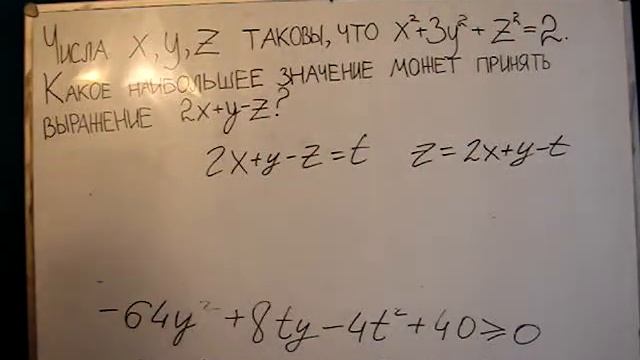 Числа x, y, z таковы, что x²+3y²+z²=2.
Какое наибольшее значение может принять
выражение 2x+y-z?
2x+y-z=t z=2x+y-t
-64y²+8ty-4t²+40≥0